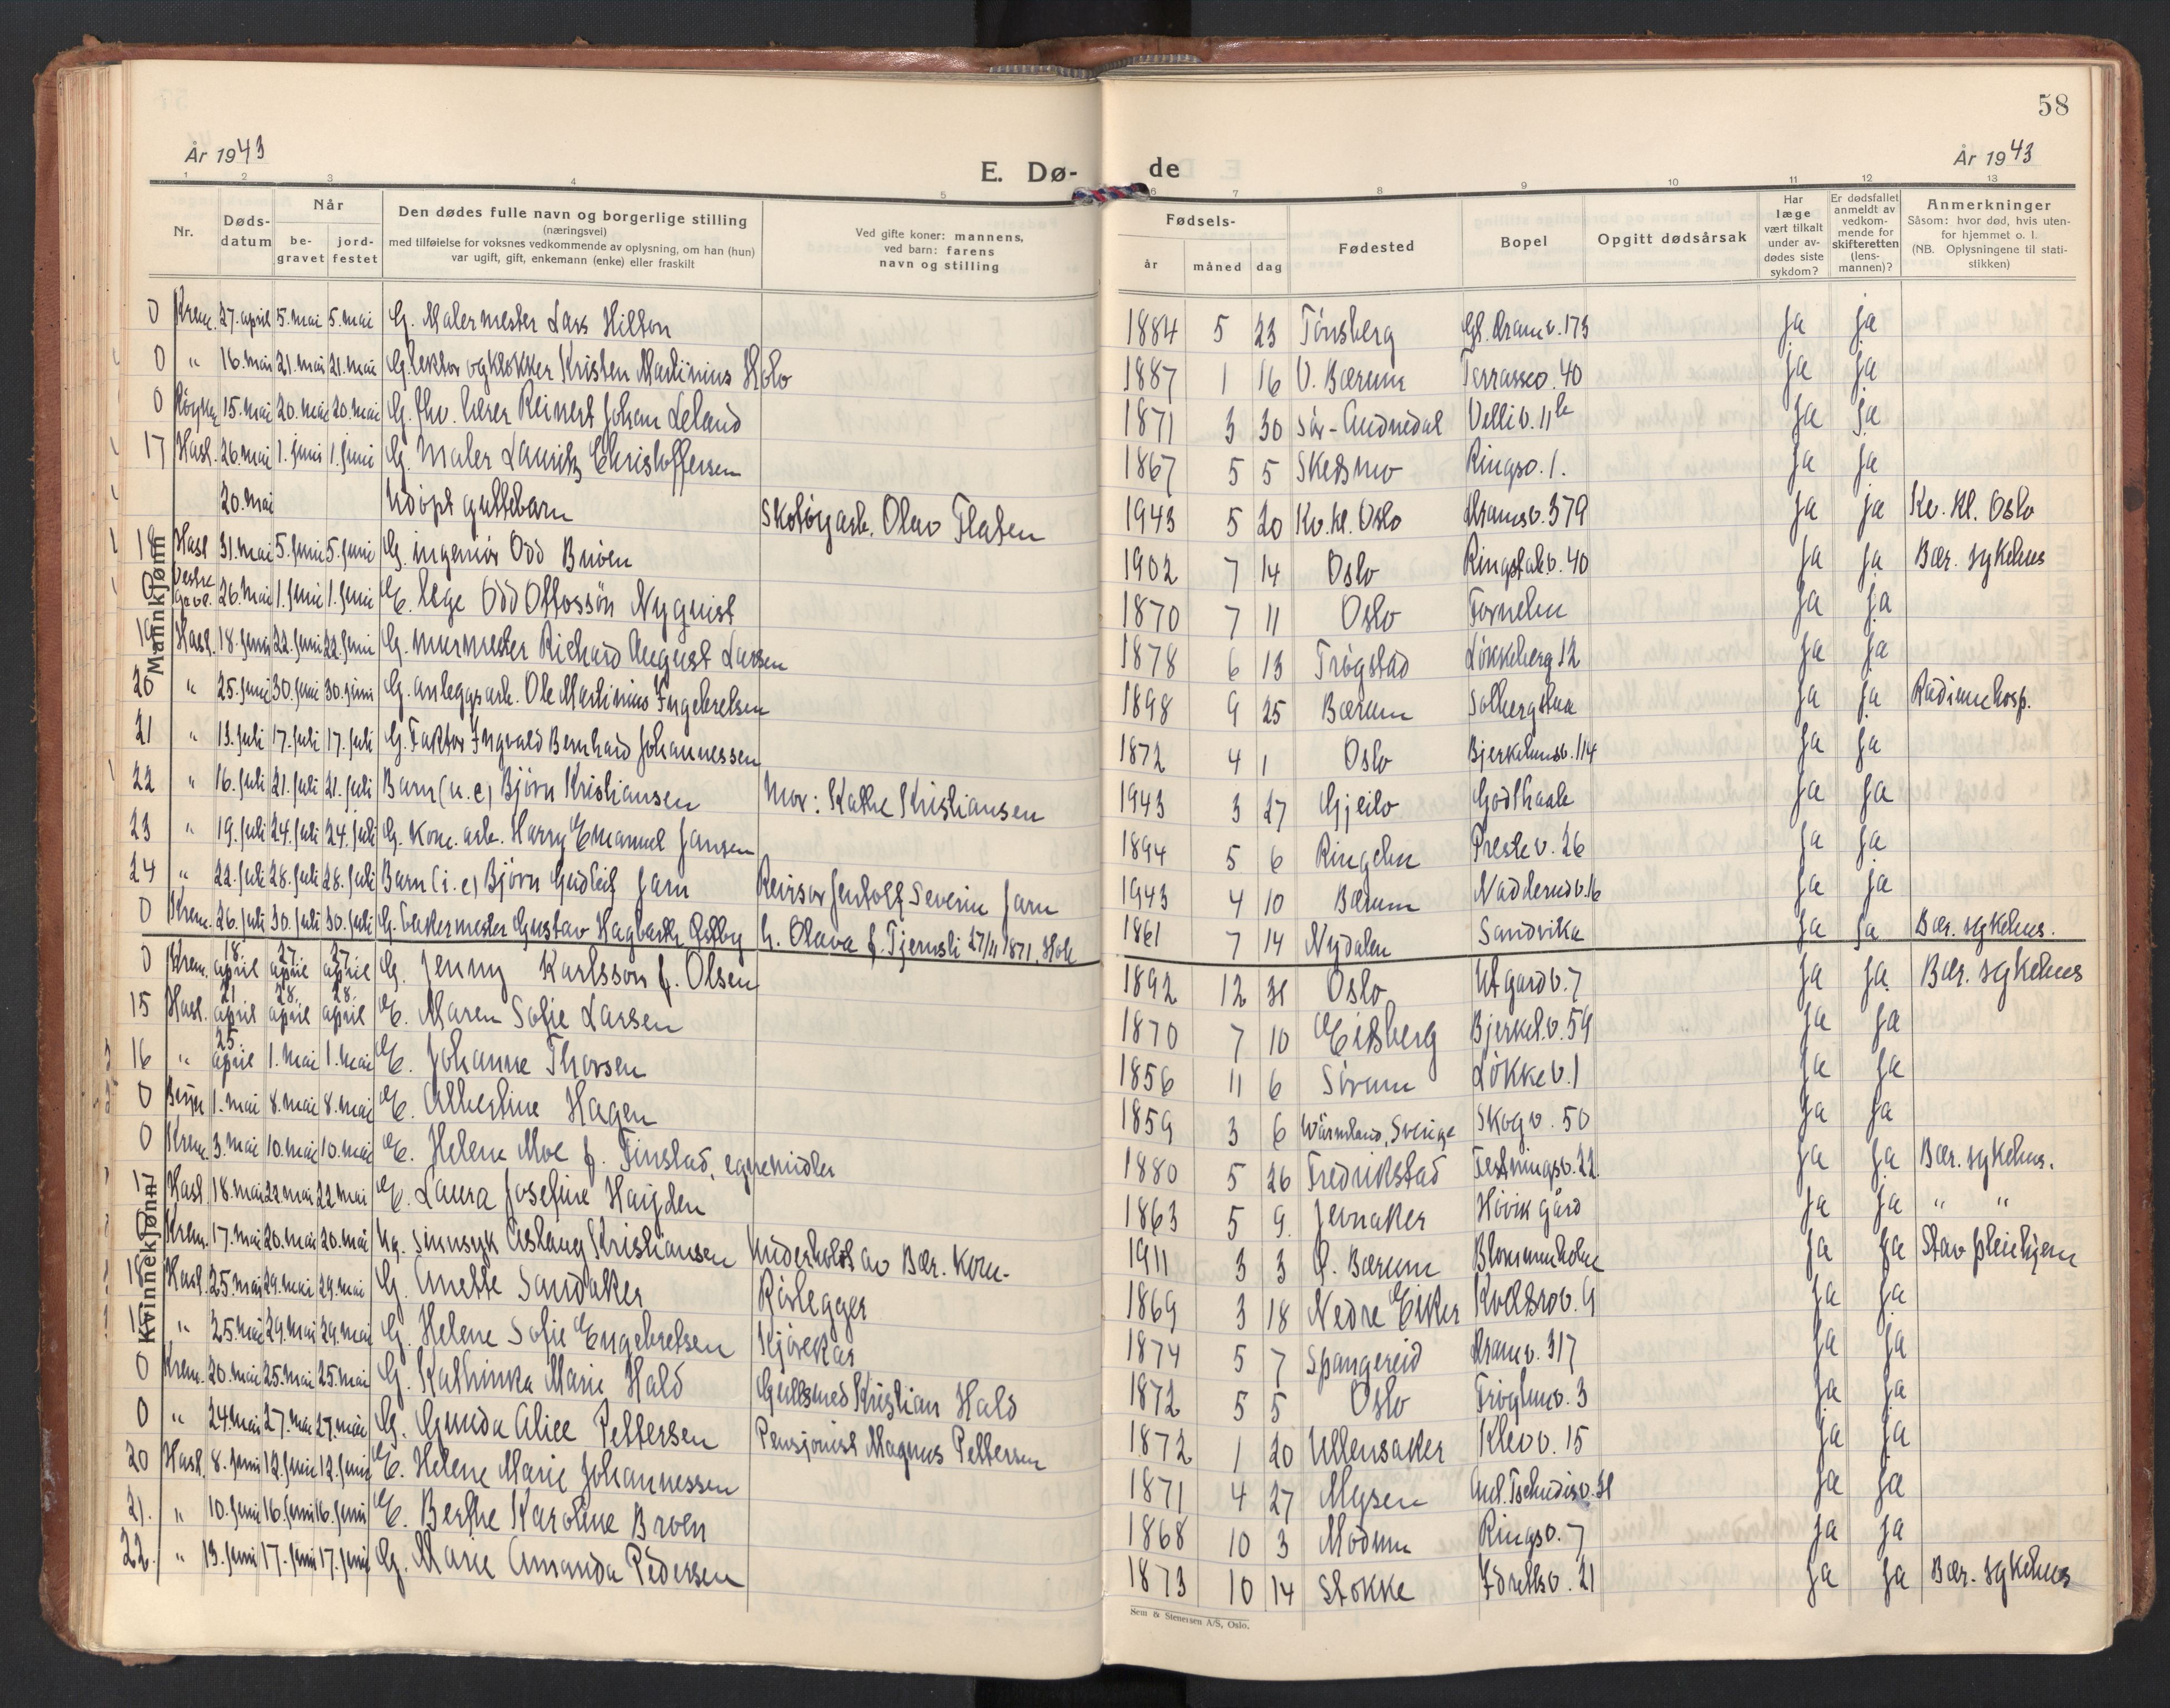 58
År 1943
E. Dø-
de
År 1943
1 2 3 4 5 6 7 8 9 10 11 12 13
Nr.
Døds-
datum
Når
be-
gravet
jord-
festet
Den dødes fulle navn og borgerlige stilling
(næringsvei)
med tilføielse for voksnes vedkommende av oplysning, om han (hun)
var ugift, gift, enkemann (enke) eller fraskilt
Ved gifte koner: mannens,
ved barn: farens
navn og stilling
Fødsels-
år
måned
dag
Fødested
Bopel
Opgitt dødsårsak
Har
læge
vært tilkalt
under av-
dødes siste
sykdom?
Er dødsfallet
anmeldt av
vedkom-
mende for
skifteretten
(lens-
mannen)?
Anmerkninger
Såsom: hvor død, hvis uten-
for hjemmet o. l.
(NB. Oplysningene til stati-
stikken)
Mannkjønn
0 Krem. 27. april 5. mai 5. mai G. Malermester Lars Hilton 1884 5 23 Tönsberg Gl. Dramv. 173 ja ja
0 " 16. mai 21. mai 21. mai G. lektor og klokker Kristen Martinius Holo 1887 1 16 V. Bærum Terrassev. 40 ja ja
0 Röyken 15. mai 20. mai 20. mai G. fhv. lærer Reinert Johan Leland 1871 3 30 Sör-Audnedal Velliv. 11b ja ja
17 Hasl. 26. mai 1. juni 1. juni G. Maler Lauritz Christoffersen 1867 5 5 Skedsmo Ringsv. 1. ja ja
20. mai Udöpt guttebarn Skotöyarb. Olav Flaten 1943 5 20 Kv. kl. Oslo Dramsv. 379 ja ja Kv. Kl. Oslo
18 Hasl 31. mai 5. juni 5. juni G. ingeniör Odd Bruen 1902 7 14 Oslo Ringstabv. 40 ja ja Bær. sykehus
0 Vestre Gravl. 26. mai 1. juni 1. juni E. lege Odd Ottossön Nyquist 1870 7 11 Oslo Fornebu ja ja
19 Hasl. 18. juni 22. juni 22. juni G. murmester Richard August Larsen 1878 6 13 Trögstad Lökkeberg 12 ja ja
20 " 25. juni 30. juni 30. juni G. anleggsarb. Ole Martinius Ingebretsen 1898 9 25 Bærum Solbergstua ja ja Radiumhosp.
21 " 13. juli 17. juli 17. juli G. Faktor Ingvald Bernhard Johannessen 1872 4 1 Oslo Bjerkelunsv. 114 ja ja
22 " 16. juli 21. juli 21. juli Barn (u. e) Björn Kristiansen Mor: Kathe Kristiansen 1943 3 27 Gjeilo Godthaab ja ja
23 " 19. juli 24. juli 24. juli G. Kom. arb. Harry Emanuel Jansen 1894 5 6 Ringebu Prestev. 26 ja ja
24 " 22. juli 28. juli 28. juli Barn (i. e) Björn Gudleif Jarn Revisor Severin Jarn 1943 4 10 Bærum Nadderudv. 16 ja ja
0 Krem. 26. juli 30. juli 30. juli G. bakermester Gustav Hagbarth Refby h. Olava f. Tjernsli 27/11 1871, Hole 1861 7 14 Nydalen Sandvika ja ja Bær. sykehus.
Kvinnekjønn
0 Krem. 18. april 27. april 27. april G. Jenny Karlsson f. Olsen 1892 12 31 Oslo Utgardv. 7 ja ja Bær. sykehus
15 Hasl. 21 april 28. april 28. april E. Maren Sofie Larsen 1870 7 10 Eidsberg Bjerkel.v. 59 ja ja
16 " 25. april 1. mai 1. mai E. Johanne Thorsen 1856 11 6 Sörum Lökkev. 1 ja ja
0 1. mai 8. mai 8. mai E. Albertine Hagen 1859 3 6 Värmland, Sverige Skogv. 50 ja ja
0 Krem. 3. mai 10. mai 10. mai E. Helene Moe f. Finstad, egnemidler 1880 5 26 Fredrikstad Festningsv. 22. ja ja Bær. sykehus.
17 Hasl 18. mai 22 mai 22 mai E. Laura Josefine Haugden 1863 5 9. Jevnaker Hövik gård ja ja " "
0 Krem. 17. mai 20. mai 20. mai Ug. sinnsyk Aslaug Kristiansen Underholdt av Bær. Kom. 1911 3 3 Ö. Bærum Blommenholm ja ja Stav pleiehjem
18 Hasl. 25. mai 29. mai 29. mai G. Anette Sandaker Rörlegger 1869 3 18 Nedre Eiker Kveldrov. 9 ja ja
19 " 25. mai 29. mai 29. mai G. Helene Sofie Engebretsen Kjörekar 1874 5 7 Spangereid Dramv. 317 ja ja
0 Krem. 20. mai 25. mai 25. mai G. Kathinka Marie Hald Gullsmed Kristian Hald 1872 5 5 Oslo Fröylunv. 3 ja ja
0 " 24 mai 27. mai 27. mai G. Gunda Alice Pettersen Pensjonist Magnus Pettersen 1872 1 20 Ullensaker Klevv. 15 ja ja
20 Hasl. 8. juni 12. juni 12. juni E. Helene Marie Johannessen 1871 4 27 Mysen Ant. Tschudisv. 31 ja ja
21. " 10. juni 16. juni 16. juni E. Berthe Karoline Broen 1868 10 3 Modum Ringsv. 7 ja ja
22. " 13. juni 17. juni 17. juni G. Marie Amanda Pedersen 1873 10 14 Stokke Idrettsv. 21 ja ja Bær. sykehus
Sem & Stenersen A/S, Oslo.